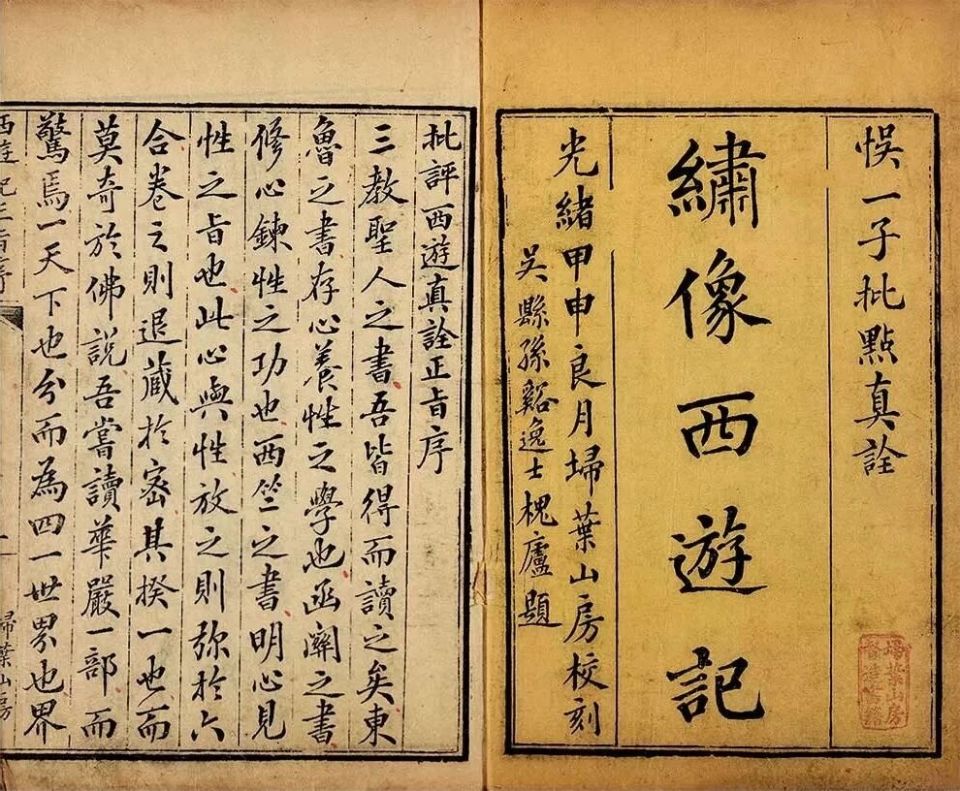 悞一子批點真詮
繡像西遊記
光緒甲申良月埽葉山房校刻
吳縣孫谿逸士槐廬題
埽葉山房
督造書籍
批評西遊真詮正旨序
三教聖人之書吾皆得而讀之矣東
魯之書存心養性之學也函關之書
修心鍊性之功也西竺之書明心見
性之旨也此心與性放之則弥於六
合卷之則退藏於密其揆一也而
莫奇於佛說吾嘗讀華嚴一部而
驚焉一天下也分而為四一世界也界
西遊記正旨序 一 掃葉山房